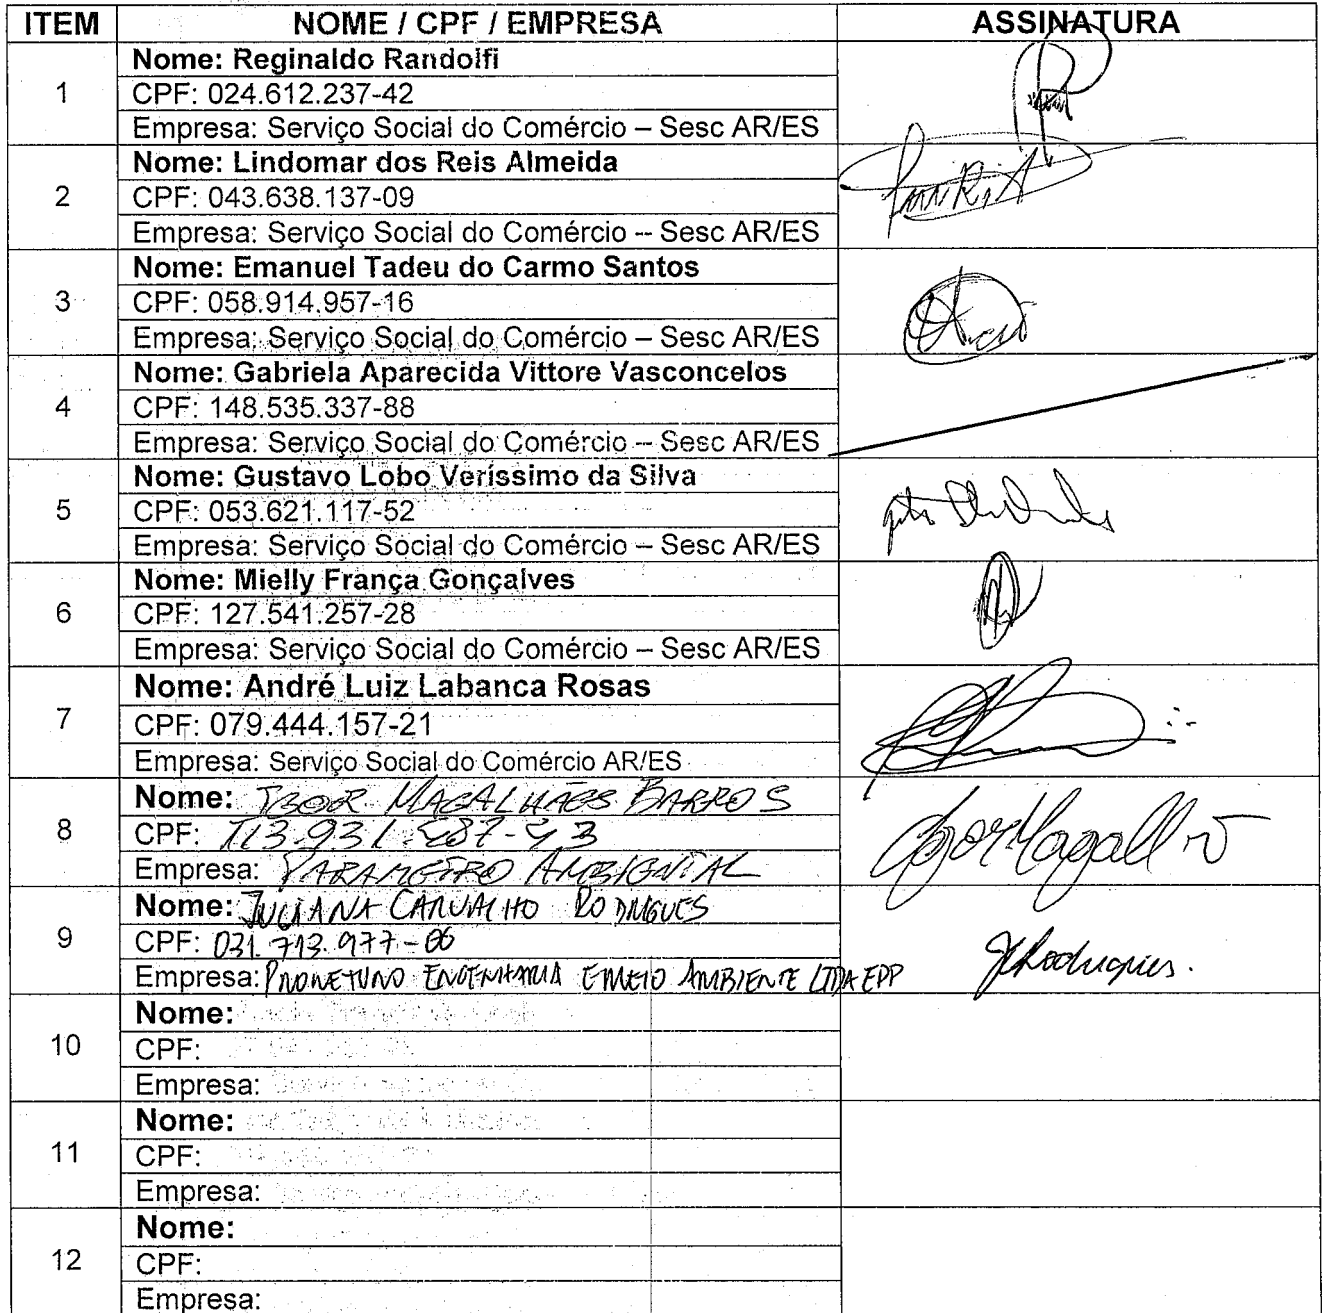 ITEM NOME / CPF / EMPRESA ASSINATURA
1
Nome: Reginaldo Randolfi
CPF: 024.612.237-42
Empresa: Serviço Social do Comércio – Sesc AR/ES
2
Nome: Lindomar dos Reis Almeida
CPF: 043.638.137-09
Empresa: Serviço Social do Comércio – Sesc AR/ES
3
Nome: Emanuel Tadeu do Carmo Santos
CPF: 058.914.957-16
Empresa: Serviço Social do Comércio – Sesc AR/ES
4
Nome: Gabriela Aparecida Vittore Vasconcelos
CPF: 148.535.337-88
Empresa: Serviço Social do Comércio – Sesc AR/ES
5
Nome: Gustavo Lobo Veríssimo da Silva
CPF: 053.621.117-52
Empresa: Serviço Social do Comércio – Sesc AR/ES
6
Nome: Mielly França Gonçalves
CPF: 127.541.257-28
Empresa: Serviço Social do Comércio – Sesc AR/ES
7
Nome: André Luiz Labanca Rosas
CPF: 079.444.157-21
Empresa: Serviço Social do Comércio AR/ES
8
Nome: MAGALHÃES BARROS
CPF:
Empresa: PARAMETRO AMBIENTAL
9
Nome: JULIANA CARVALHO RODRIGUES
CPF: 031.713.977-06
Empresa: ENGENHARIA E MEIO AMBIENTE LTDA EPP
JCRodrigues.
10
Nome:
CPF:
Empresa:
11
Nome:
CPF:
Empresa:
12
Nome:
CPF:
Empresa: